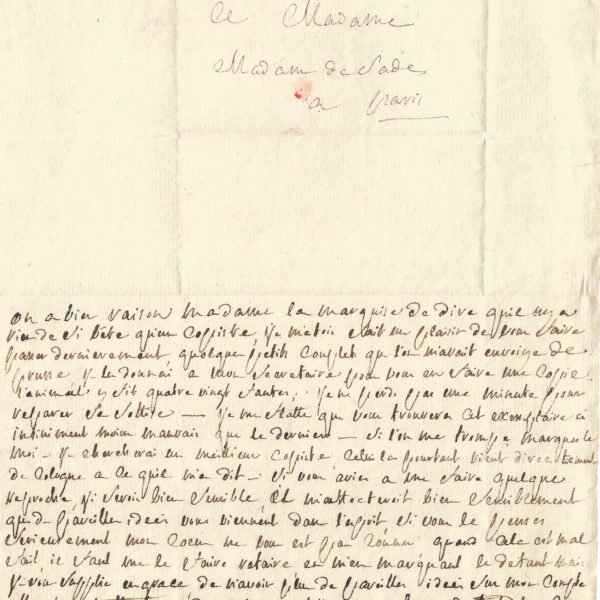 a Madame
Madam de Sade
a paris
on a bien raison madame la marquise de dire quil ny a
rien de si bête quun coppiste, je metois fait un plaisir de vous faire
passer dernierement quelque petits couplet que l'on mavait envoiné de
prusse je le donnai a mon secretaire pour vous en faire une copie
l'animal y fit quatre vingt fautes, je ne perds pas une minute pour
reparer sa sottise — je me flatte que vous trouverez cet exemplaire ci
infiniment moin mauvais que le dernier — si l'on me trompe, marquez le
moi — je chercherai un meilleur coppiste celui la pourtant vient directement
de Bologne a ce quil ma dit — si vous avies a me faire quelque
reproche j'i serois bien sensible il m'affecteroit bien sensiblement
que de pareilles idees vous viennent dans l'esprit si vous le penses
serieusement mon coeur ne vous est pas quand cela est mal
fait il faut me le faire refaire en mien marquant le defaut mais
je vous supplie en grace de n'avoir plus de pareilles idees sur mon compte